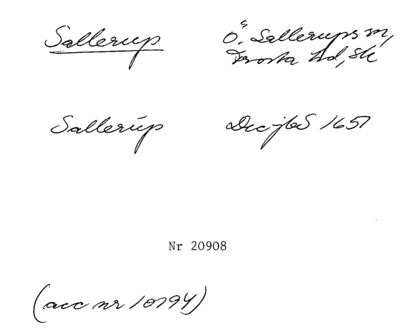 Sallerup Ö. Sallerups sn,
Frosta hd, Sk
Sallerup DecjbS 1651
Nr 20908
(acc nr 10794)